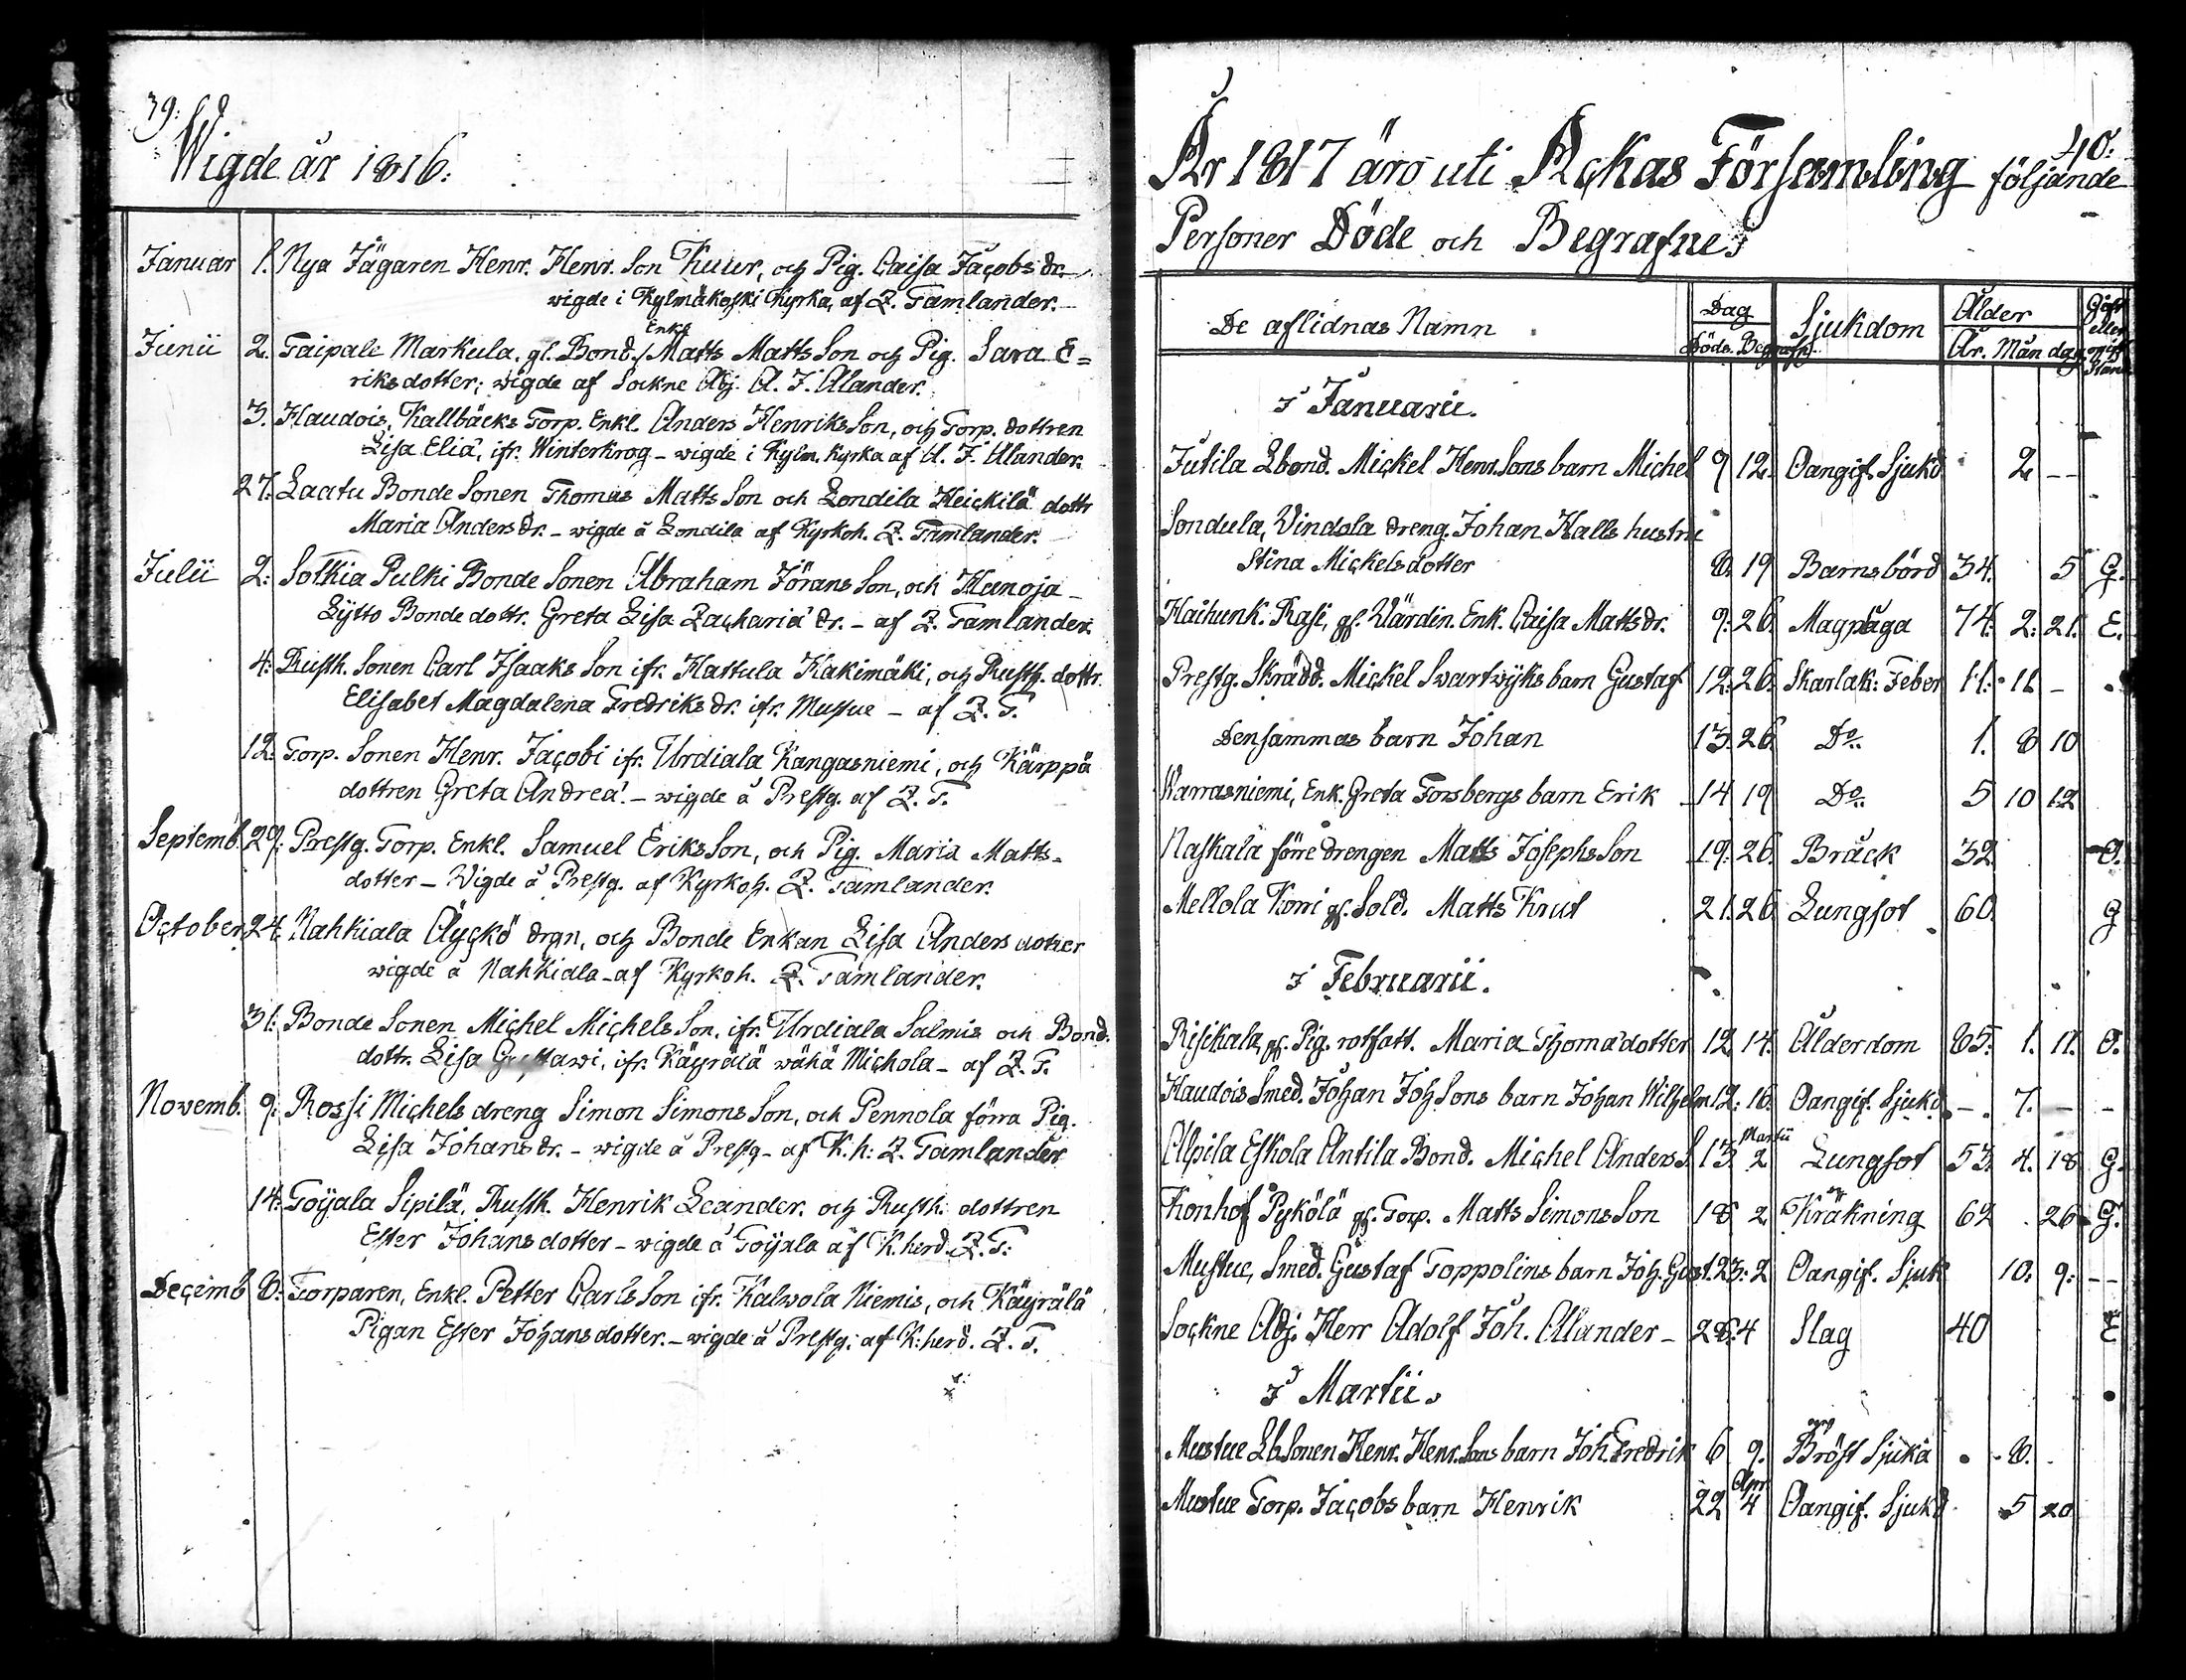 39:
Wigde år 1816:
Januar 1. Nya Jägaren Henr. Henr. Son Kuur, och Pig. Caisa Jacobs dr.
wigde i Kylmäkoski Kyrka, af Z. Tamlander.
Enkl
Junii 2. Taipale Markula, gl. Bond. / Matts Matts Son och Pig. Sara E=
riksdotter; wigde af Sockne Adj. A. J. Alander.
3. Haudois, Kallbäcks Torp. Enkl. Anders Henriks Son, och Torp. dottren
Lisa Eliæ, ifr. Winterkrog - wigde i Kylm. Kyrka af A. J. Alander.
27. Laatu Bonde Sonen Thomas Matts Son och Londila Heickilä dottr
Maria Anders dr. - wigde å Londila af Kyrkoh. Z. Tamlander.
Julii 2: Sotkia Pulki Bonde Sonen Abraham Jörans Son, och Hanoja -
Lytto Bonde dottr. Greta Lisa Zachariæ dr. - af Z. Tamlander.
4: Rusth. Sonen Carl Isaaks Son ifr. Hattula Kakimäki, och Rusth. dottr.
Elisabet Magdalena Fredriks dr. ifr. Mustue - af Z. T.
12: Torp. Sonen Henr. Jacobi ifr. Urdiala Kangasniemi, och Kärppä
dottren Greta Andreæ. - wigde å Prestg. af Z. T.
Septemb. 29: Prestg. Torp. Enkl. Samuel Eriks Son, och Pig. Maria Matts-
dotter - Wigde å Prestg. af Kyrkoh. Z. Tamlander.
October 24. Nahkiala Äyckö drgn, och Bonde Enkan Lisa Anders dotter
wigde å Nahkiala - af Kyrkoh. Z. Tamlander.
31: Bonde Sonen Michel Michels Son. ifr. Urdiala Salmis och Bond.
dottr. Lisa Gustawi, ifr. Käyrälä wähä Michola - af Z. T.
Novemb. 9: Rossi Michels dreng Simon Simons Son, och Pennola förra Pig.
Lisa Johans dr. - wigde å Prestg - af K.h: Z. Tamlander
14: Toijala Sipilä, Rusth. Henrik Leander. och Rusth. dottren
Ester Johans dotter - wigde å Toijala af K.herd. Z. T:
Decemb 8: Torparen, Enkl. Petter Carls Son ifr. Kalwola Niemis, och Käyrälä
Pigan Ester Johans dotter. - wigde å Prestg. af K.herd. Z. T.
40:
År 1817 äro uti Ackas Församling följande
Personer Döde och Begrafne
De aflidnas Namn Dag Sjukdom Ålder Gift
Döds. Begrafn. År. Mån dag. eller
ogift
Stånd
I Januarii.
Jutila Lbond. Mickel Henr. Sons barn Michel 9 12. Oangif. Sjukd 2 - -
Sondula, Vindala dreng. Johan Halls hustru
Stina Mickels dotter 8. 19 Barnsbörd 34. 5 G.
Haihunk. Rasi, gl. Wärdin. Enk. Caisa Matts dr. 9. 26. Magplåga 74. 2: 21. E.
Prestg. Skrädd. Mickel Swartwyks barn Gustaf 12. 26. Skarlak: Feber 11. 11 -
Densammas barn Johan 13. 26 Do. 1. 8 10
Warrasniemi, Enk. Greta Forsbergs barn Erik 14 19 Do. 5 10 12
Naskala förre drengen Matts Josephs Son 19. 26. Bråck 32 O.
Mellola Korri gl. Sold. Matts Krut 21. 26 Lungsot 60 G
I Februarii.
Risikala, gl. Pig. rotfatt. Maria Thomædotter 12 14. Ålderdom 85. 1. 11. O.
Haudois Smed. Johan Joh Sons barn Johan Wilhelm 12: 16. Oangif. Sjukd. - 7. - -
Martii
Alpila Eskola Antila Bond. Michel Anders S. 13 2 Lungsot 53. 4. 18 G.
Konhof Pykölä gl. Torp. Matts Simons Son 18 2 Kräkning 62 26 G.
Mustue, Smed. Gustaf Toppolins barn Joh. Gust. 23: 2 Oangif. Sjuk 10. 9: - -
Sockne Adj. Herr Adolf Joh. Alander - 28. 4 Slag 40 E
I Martii.
Mustue Lb Sonen Henr. Henr. Sons barn Joh. Fredrik 6 9. Bröst Sjuka 8.
Apr.
Mustue Torp. Jacobs barn Henrik 22 4 Oangif. Sjukd 5 20